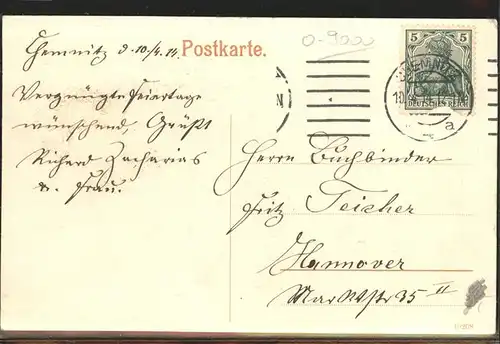 Chemnitz d. 10/4.14.
Postkarte.
0-9000
Vergnügte Feiertage
wünschend, Grüßt
Richard Zacharias
u. Frau.
5 5
CHEMNITZ
DEUTSCHES REICH
a
Herrn Buchbinder
Fritz Teicher
Hannover
Marktstr 35 II